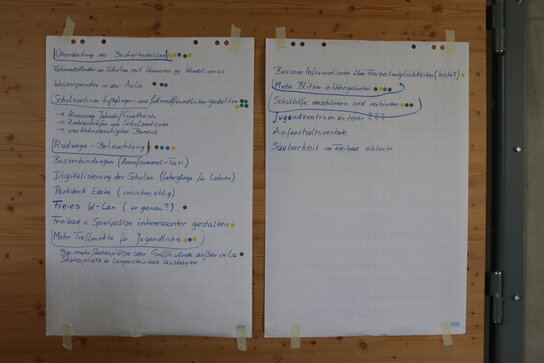 Überdachung der Bushaltestellen
Fahrradständer an Schulen mit Kamera gg Vandalismus
Wasserspender in der Aula
Schulzentrum fußgänger- und fahrradfreundlicher gestalten
→ Kreuzung Jahnstr/Goethestr.
→ Zebrastreifen am Schulzentrum
→ verkehrsberuhigter Bereich
Radwege - Beleuchtung
Busverbindungen (Anrufsammel-Taxi)
Digitalisierung der Schulen (Lehrgänge für Lehrer)
Parkdeck Edeka (unsicher, eklig)
Freies W-Lan (wo genau?)
Freibad u Spielplätze interessanter gestalten
Mehr Treffpunkte für Jugendliche
mehr Skaterplätze oder außer in La
Skaterplatz in Langensteinbach ausbauen
Bessere Informationen über Freizeitmöglichkeiten (Insta?)
Mehr Blitzer in Wohngebieten
Schulhöfe verschönern und verbinden
Jugendzentrum zu teuer ???
Aufenthaltsverbote
Sauberkeit im Freibad schlecht